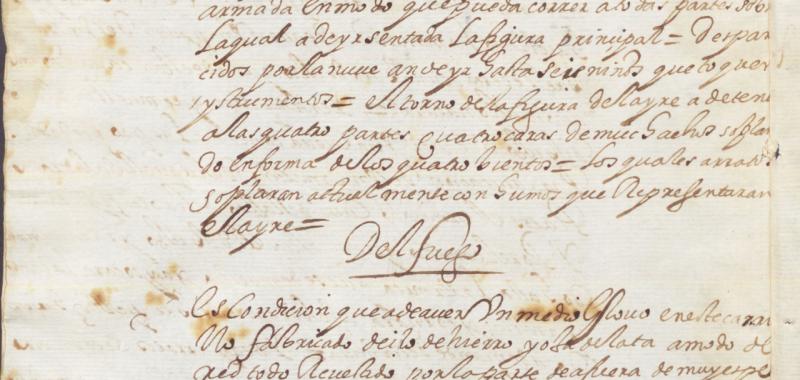 armada en modo que pueda correr a todas partes sobr
la qual a de yr sentada la figura principal = Despar
cidos por la nuve an de yr hasta seis niños que toquen
ystrumentos = el torno de la figura del ayre a de tene
a las quatro partes quatro caras de muchachos soplan
do en forma de los quatro bientos = los quales a rratos
soplaran actual mente con humos que Representaran
el ayre =
Del fuego
Es Condicion que a de aver Un medio Glovo en este carr
No fabricado de ilo de hierro y oja de lata a modo de
red todo Revelado por la parte de afuera de muy espe